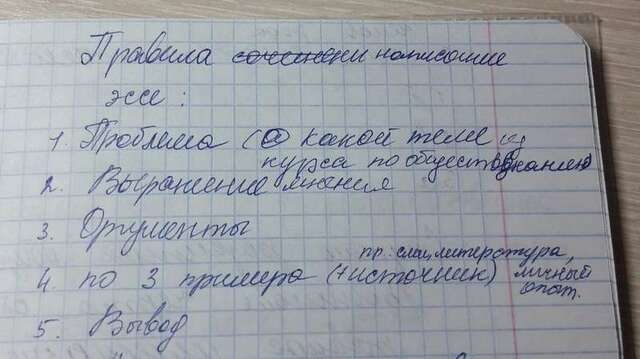 Правила написание
эссе:
1. Проблема (О какой теме из
курса по обществознанию
2. Выражение мнения
3. Аргументы
пр: спец.литература,
4. по 3 примера (+источник) личный
опыт.
5. Вывод